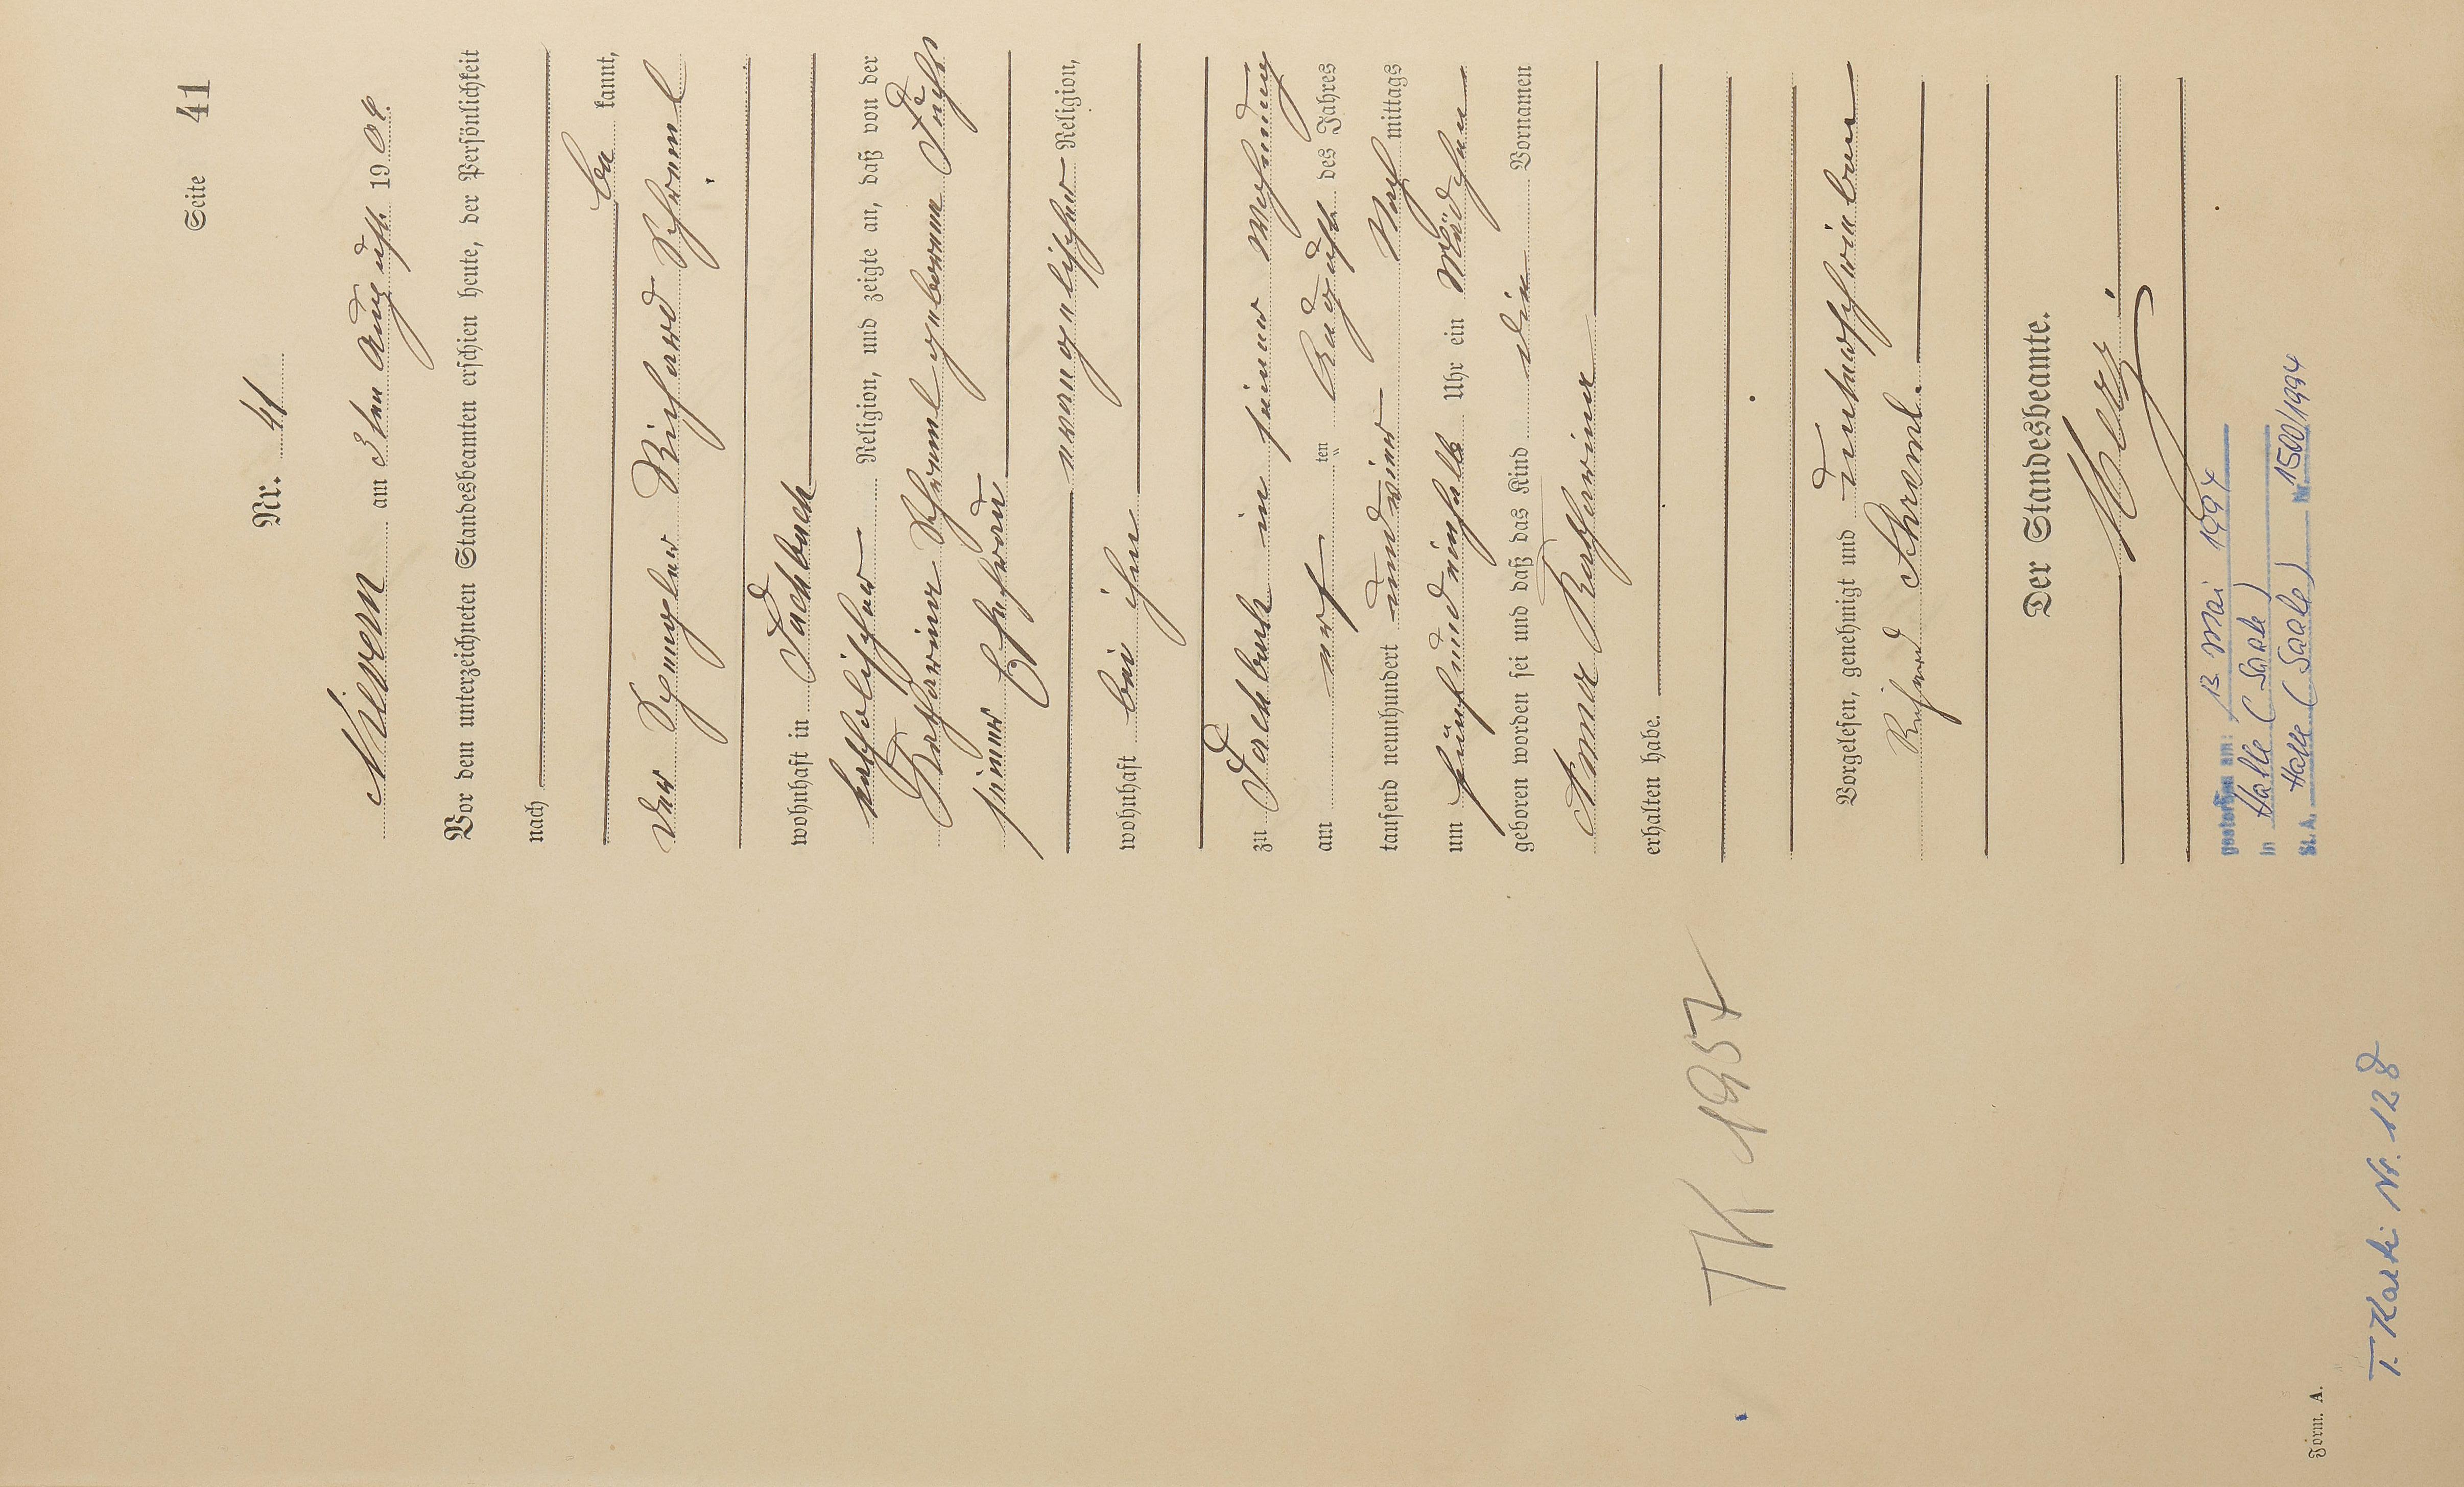 Seite 41
Nr. 41
Nievern am 3ten August 190
Vor dem unterzeichneten Standesbeamten erschien heute, der Persönlichkeit
nach
be kannt,
der Spengler Richard Schreml
wohnhaft in Fachbach
katholischer Religion, und zeigte an, daß von der
Katharina Schreml geborenen Fuchs
seiner Ehefrau
evangelischer Religion,
wohnhaft bei ihm
zu Fachbach in seiner Wohnung
am ten August des Jahres
tausend neunhundert und Nach mittags
um fünf und einhalb Uhr ein Mädchen
geboren worden sei und daß das Kind die Vornamen
Anna Katharina
erhalten habe.
Vorgelesen, genehmigt und unterschrieben
Richard Schreml.
Der Standesbeamte.
gestorben am: 13. Mai 1994
in Halle (Saale)
St. A. Halle (Saale) Nr. 1500/1994
TK 1957
Form. A.
T. Kartei Nr. 128